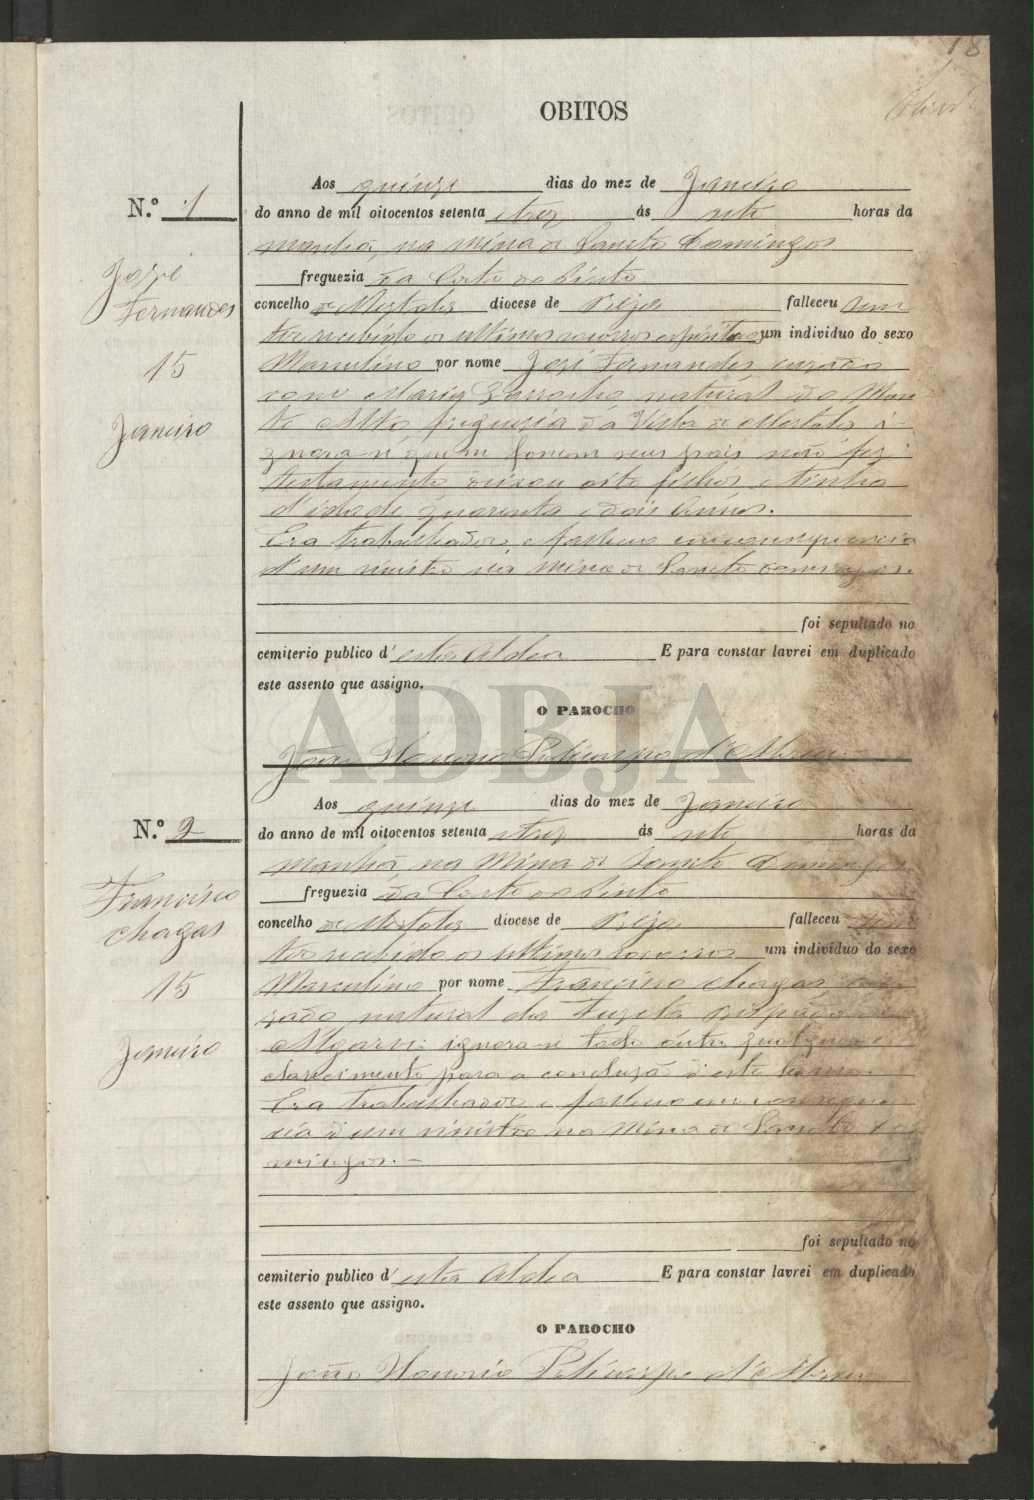 18
OBITOS
Aos quinze dias do mez de Janeiro
N.º 1
do anno de mil oitocentos setenta e trez ás sete horas da
manhã, na Mina de Sancto Domingos
freguezia da Corte do Pinto
José
Fernandes
15
Janeiro
concelho de Mertola diocese de Beja falleceu sem
ter recebido os ultimos soccorros espirituaes um individuo do sexo
Masculino por nome José Fernandes cazado
com Maria natural do Mon
te Alto freguezia da Villa de Mertola i-
gnora-se quem foram seus pais não fez
testamento deixou oito filhos e tinha
d'idade quarenta e dois annos.
Era trabalhador, e falleceu em consequencia
d'um sinistro na Mina de Sancto Domingos.
foi sepultado no
cemiterio publico d'esta Aldea E para constar lavrei em duplicado
este assento que assigno.
O PAROCHO
ADBJA
João Honorio Policarpo d'Abreu
Aos quinze dias do mez de Janeiro
N.º 2
do anno de mil oitocentos setenta e trez ás sete horas da
manhã, na Mina de Sancto Domingos
freguezia da Corte do Pinto
Francisco
Chagas
15
Janeiro
concelho de Mertola diocese de Beja falleceu sem
ter recebido os ultimos soccorros um individuo do sexo
Masculino por nome Francisco Chagas, ca-
zado natural da Fuzeta
Algarve: ignora-se todo outro qualquer es-
clarecimento para a concluzão d'este
Era trabalhador e falleceu em consequen
cia d'um sinistro na Mina de Sancto Do
mingos.-
foi sepultado no
cemiterio publico d'esta Aldea E para constar lavrei em duplicado
este assento que assigno.
O PAROCHO
João Honorio Policarpo d'Abreu